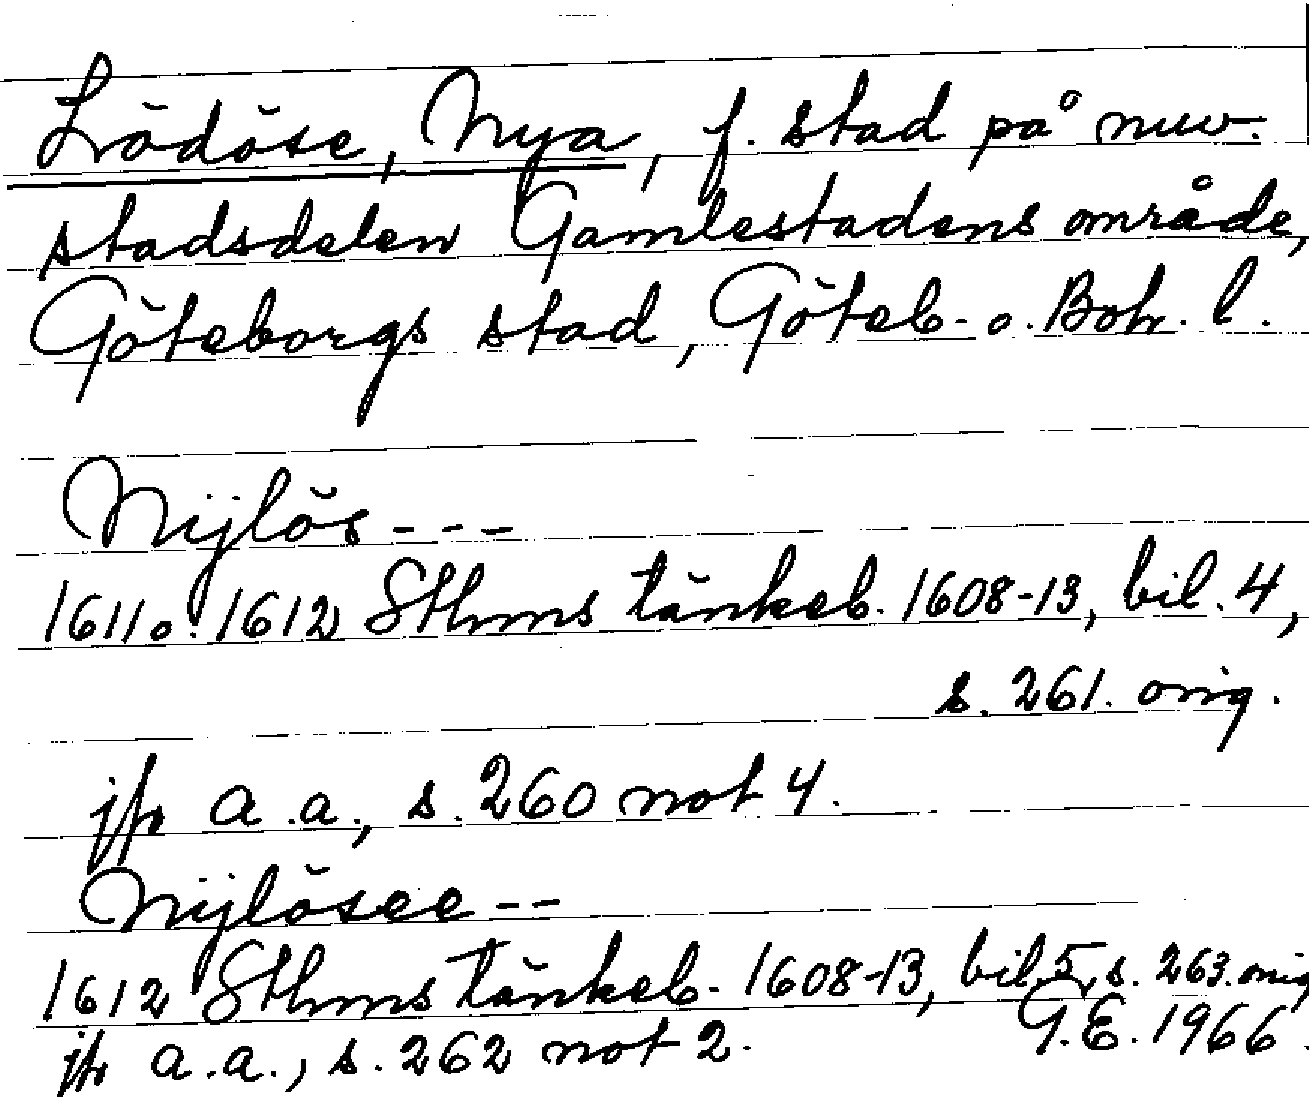 Lödöse, Nya, f. stad på nuv.
stadsdelen Gamlestadens område,
Göteborgs stad, Göteb. o. Boh. l.
Nijlös---
1611 o. 1612 Sthms tänkeb. 1608-13, bil. 4,
s. 261. orig.
jfr a.a., s. 260 not 4.
Nijlösee --
1612 Sthms tänkeb. 1608-13, bil. 5, s. 263. orig
jfr a.a., s. 262 not 2. G.E. 1966.